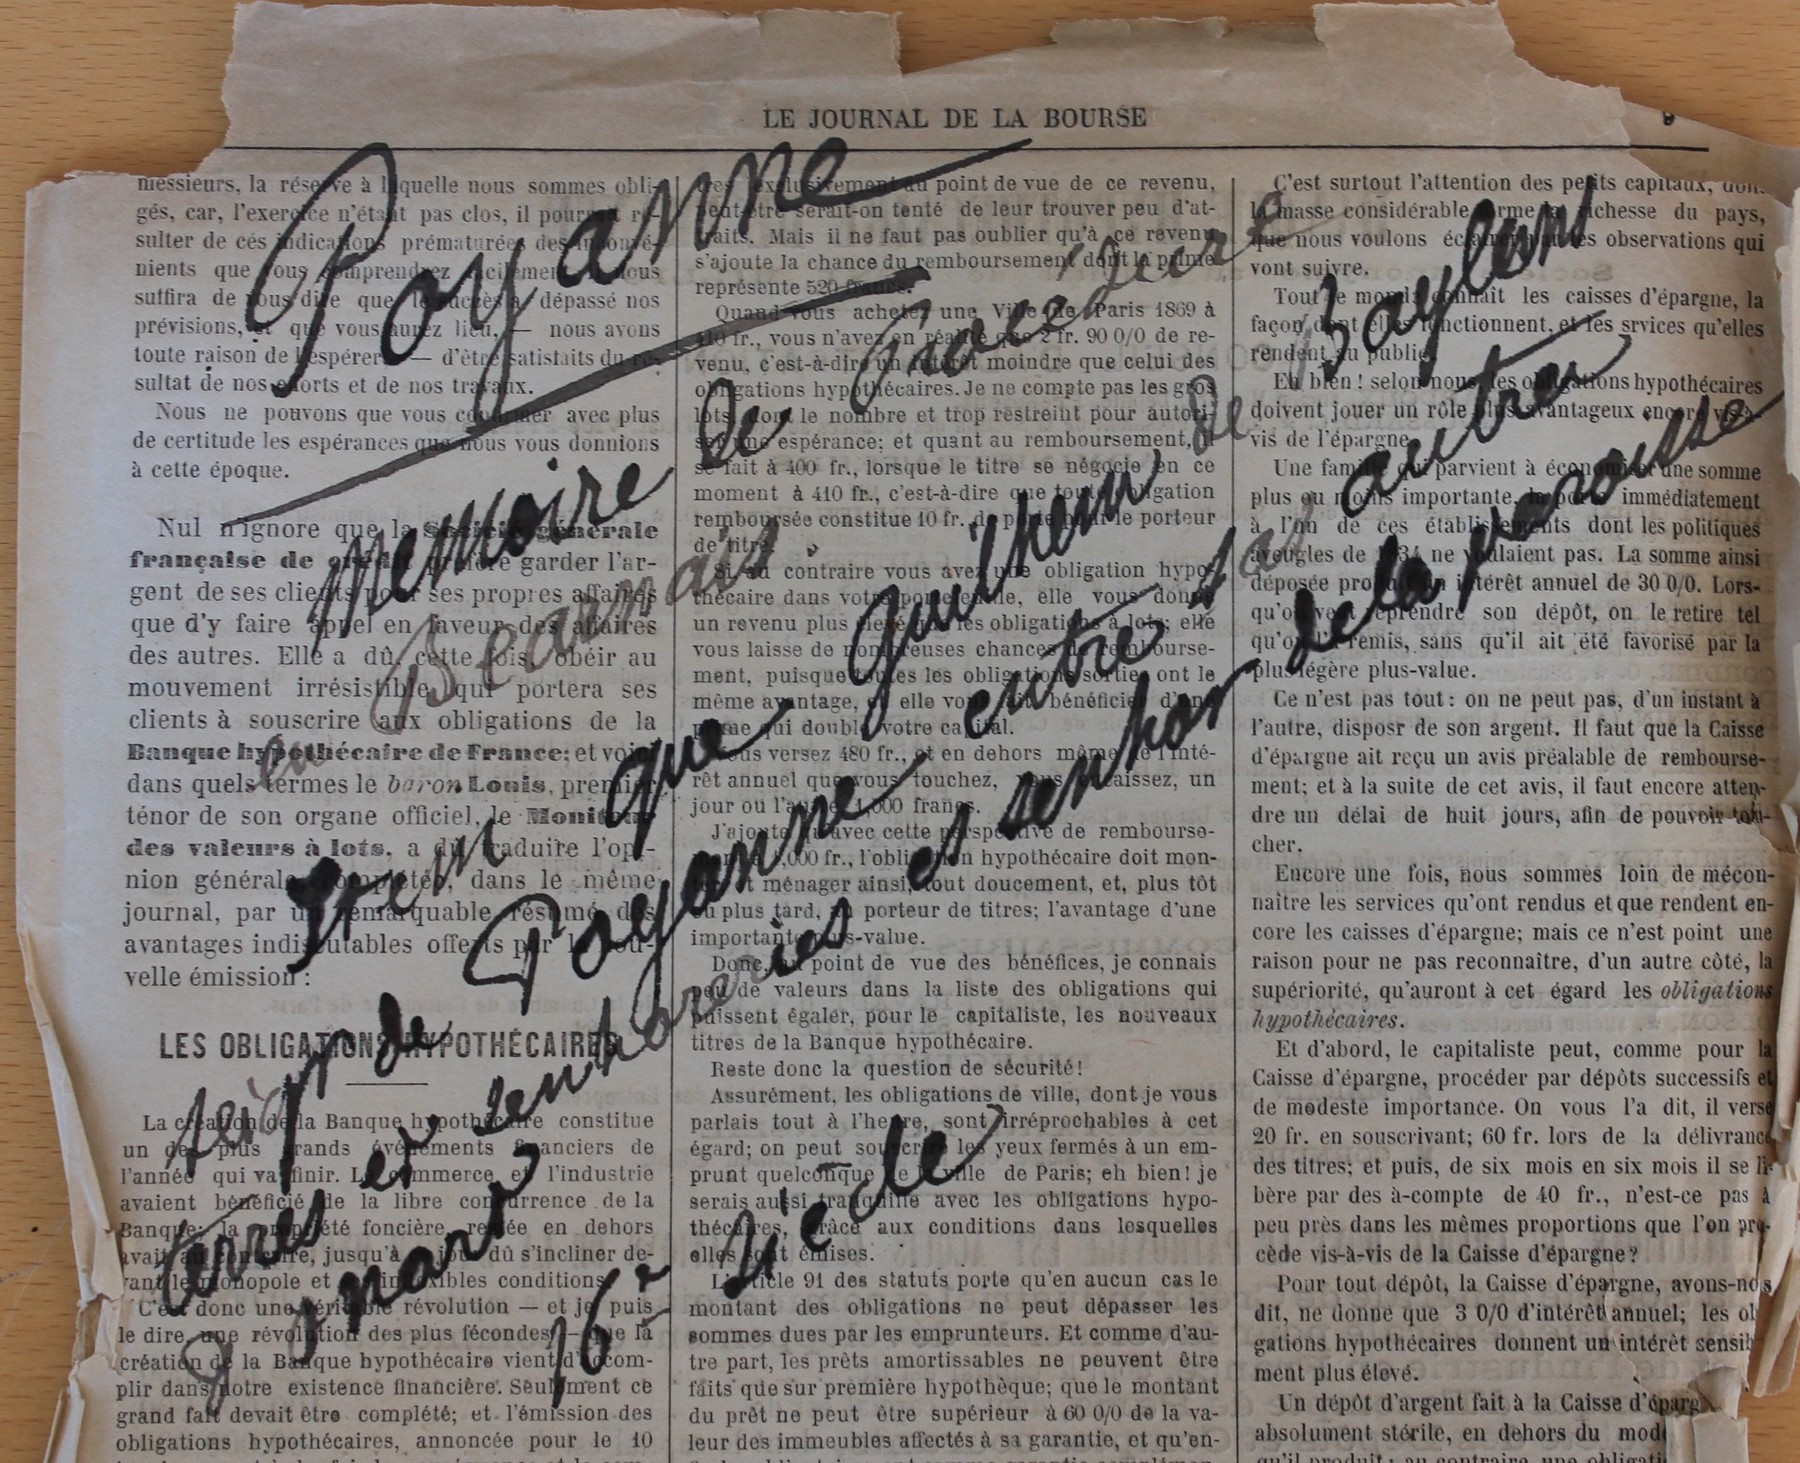 LE JOURNAL DE LA BOURSE
Poyanne
Memoire de Procédure
en Béarnais
Item que Guilhem de Baylens
seignr de Poyanne entre sas autres
terres et senhories es senhor de la
g
16e siècle
messieurs, la réserve à laquelle nous sommes obli-
gés, car, l'exercice n'étant pas clos, il pourrait ré-
sulter de ces indications prématurées des inconvé-
nients que vous comprendrez facilement. Il nous
suffira de vous dire que le succès a dépassé nos
prévisions, et que vous aurez lieu, — nous avons
toute raison de l'espérer — d'être satisfaits du ré-
sultat de nos efforts et de nos travaux.
Nous ne pouvons que vous confirmer avec plus
de certitude les espérances que nous vous donnions
à cette époque.
Nul n'ignore que la Société générale
française de crédit préfère garder l'ar-
gent de ses clients pour ses propres affaires
que d'y faire appel en faveur des affaires
des autres. Elle a dû, cette fois, obéir au
mouvement irrésistible qui portera ses
clients à souscrire aux obligations de la
Banque hypothécaire de France; et voici
dans quels termes le baron Louis, premier
ténor de son organe officiel, le Moniteur
des valeurs à lots, a dû traduire l'opi-
nion générale, complétée, dans le même
journal, par un remarquable résumé des
avantages indiscutables offerts par la nou-
velle émission :
LES OBLIGATIONS HYPOTHÉCAIRES
La création de la Banque hypothécaire constitue
un des plus grands événements financiers de
l'année qui va finir. Le commerce et l'industrie
avaient bénéficié de la libre concurrence de la
Banque; la propriété foncière, restée en dehors
avait au contraire, jusqu'à ce jour dû s'incliner de-
vant le monopole et ses inflexibles conditions.
C'est donc une véritable révolution — et je puis
le dire, une révolution des plus fécondes — que la
création de la Banque hypothécaire vient d'accom-
plir dans notre existence financière. Seulement ce
grand fait devait être complété; et l'émission des
obligations hypothécaires, annoncée pour le 10
tres exclusivement au point de vue de ce revenu,
peut-être serait-on tenté de leur trouver peu d'at-
traits. Mais il ne faut pas oublier qu'à ce revenu
s'ajoute la chance du remboursement dont la prime
représente 520 francs.
Quand vous achetez une Ville de Paris 1869 à
410 fr., vous n'avez en réalité que 2 fr. 90 0/0 de re-
venu, c'est-à-dire un intérêt moindre que celui des
obligations hypothécaires. Je ne compte pas les gros
lots, dont le nombre et trop restreint pour autori-
ser une espérance; et quant au remboursement, il
se fait à 400 fr., lorsque le titre se négocie en ce
moment à 410 fr., c'est-à-dire que toute obligation
remboursée constitue 10 fr. de perte pour le porteur
de titre.
Si au contraire vous avez une obligation hypo-
thécaire dans votre portefeuille, elle vous donne
un revenu plus élevé que les obligations à lots; elle
vous laisse de nombreuses chances de rembourse-
ment, puisque toutes les obligations sorties ont le
même avantage, et elle vous fait bénéficier d'une
prime qui double votre capital.
Vous versez 480 fr., et en dehors même de l'inté-
rêt annuel que vous touchez, vous encaissez, un
jour ou l'autre 1,000 francs.
J'ajoute qu'avec cette perspective de rembourse-
ment à 1,000 fr., l'obligation hypothécaire doit mon-
ter et ménager ainsi, tout doucement, et, plus tôt
ou plus tard, au porteur de titres; l'avantage d'une
importante plus-value.
Donc, au point de vue des bénéfices, je connais
peu de valeurs dans la liste des obligations qui
puissent égaler, pour le capitaliste, les nouveaux
titres de la Banque hypothécaire.
Reste donc la question de sécurité!
Assurément, les obligations de ville, dont je vous
parlais tout à l'heure, sont irréprochables à cet
égard; on peut souscrire les yeux fermés à un em-
prunt quelconque de la ville de Paris; eh bien! je
serais aussi tranquille avec les obligations hypo-
thécaires, grâce aux conditions dans lesquelles
elles sont émises.
L'article 91 des statuts porte qu'en aucun cas le
montant des obligations ne peut dépasser les
sommes dues par les emprunteurs. Et comme d'au-
tre part, les prêts amortissables ne peuvent être
faits que sur première hypothèque; que le montant
du prêt ne peut être supérieur à 60 0/0 de la va-
leur des immeubles affectés à sa garantie, et qu'en-
C'est surtout l'attention des petits capitaux, dont
la masse considérable forme la richesse du pays,
que nous voulons éclairer par les observations qui
vont suivre.
Tout le monde connaît les caisses d'épargne, la
façon dont elles fonctionnent, et les srvices qu'elles
rendent au public.
Eh bien! selon nous, les obligations hypothécaires
doivent jouer un rôle plus avantageux encore vis-à-
vis de l'épargne.
Une famille qui parvient à économiser une somme
plus ou moins importante, la porte immédiatement
à l'un de ces établissements dont les politiques
aveugles de 1834 ne voulaient pas. La somme ainsi
déposée produit un intérêt annuel de 3 0 0/0. Lors-
qu'on veut reprendre son dépôt, on le retire tel
qu'on l'a remis, sans qu'il ait été favorisé par la
plus légère plus-value.
Ce n'est pas tout : on ne peut pas, d'un instant à
l'autre, disposr de son argent. Il faut que la Caisse
d'épargne ait reçu un avis préalable de rembourse-
ment; et à la suite de cet avis, il faut encore atten-
dre un délai de huit jours, afin de pouvoir tou-
cher.
Encore une fois, nous sommes loin de mécon-
naître les services qu'ont rendus et que rendent en-
core les caisses d'épargne; mais ce n'est point une
raison pour ne pas reconnaître, d'un autre côté, la
supériorité, qu'auront à cet égard les obligations
hypothécaires.
Et d'abord, le capitaliste peut, comme pour la
Caisse d'épargne, procéder par dépôts successifs et
de modeste importance. On vous l'a dit, il verse
20 fr. en souscrivant; 60 fr. lors de la délivrance
des titres; et puis, de six mois en six mois il se li-
bère par des à-compte de 40 fr., n'est-ce pas à
peu près dans les mêmes proportions que l'on pro-
cède vis-à-vis de la Caisse d'épargne?
Pour tout dépôt, la Caisse d'épargne, avons-nos
dit, ne donne que 3 0/0 d'intérêt annuel; les obl
gations hypothécaires donnent un intérêt sensib
ment plus élevé.
Un dépôt d'argent fait à la Caisse d'éparg
absolument stérile, en dehors du mod
qu'il produit; au contraire, une obligati